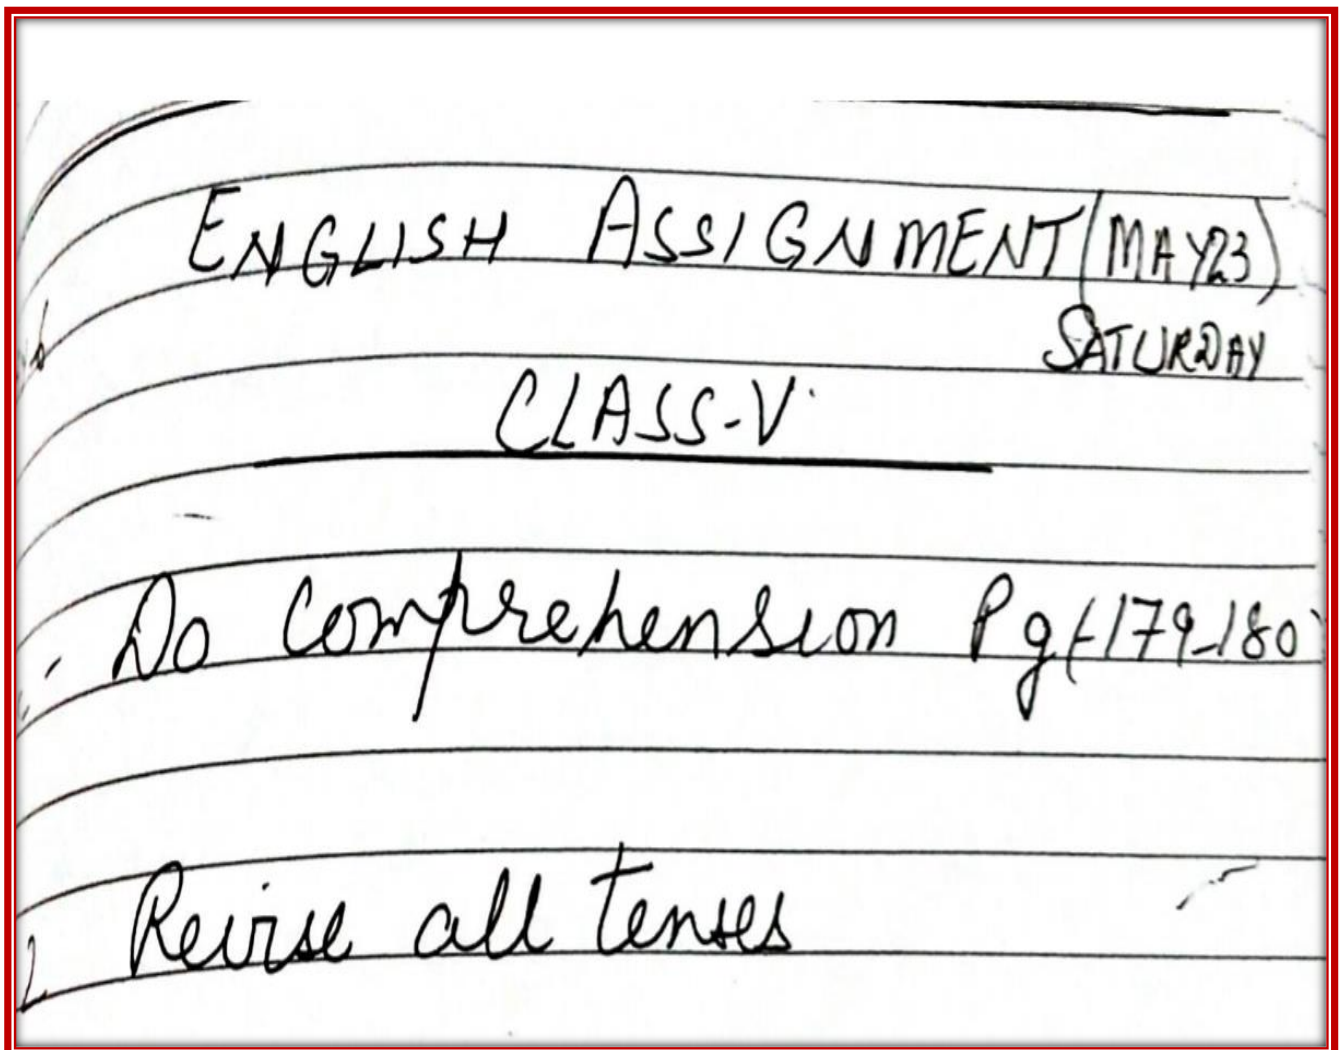 ENGLISH ASSIGNMENT (MAY23)
SATURDAY
CLASS-V
Do Comprehension Pg (-179-180
2 Revise all tenses